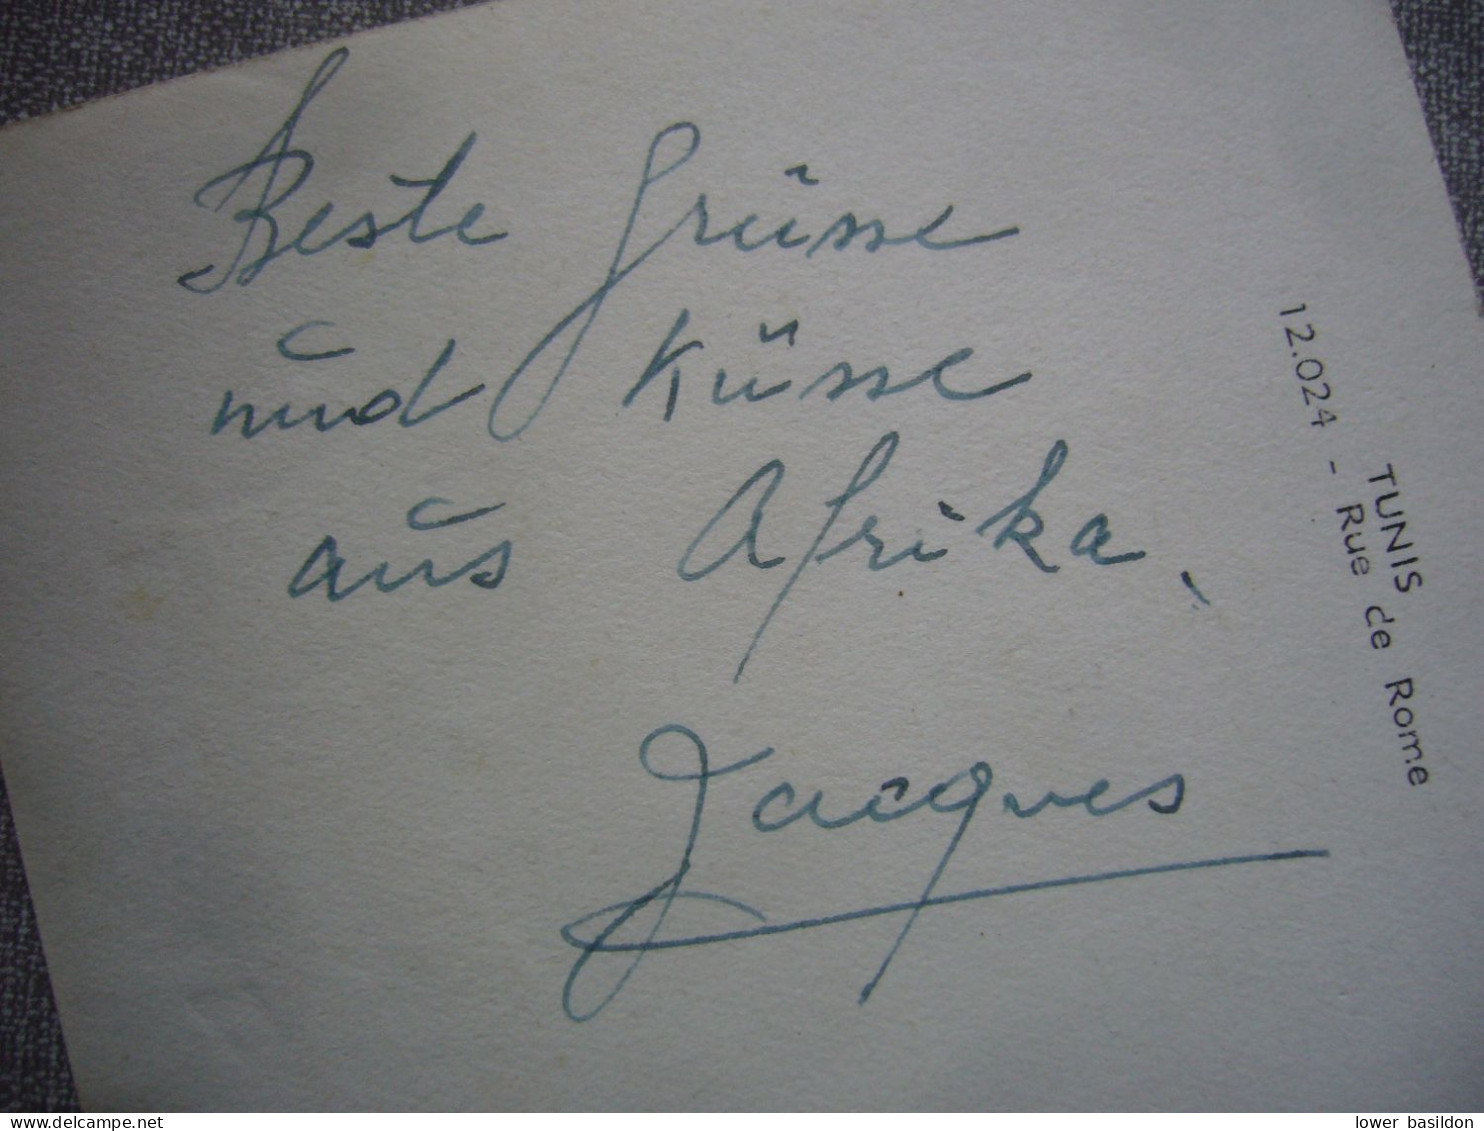 Beste Grüsse
und Küsse
aus Afrika.
Jacques
TUNIS
12.024 - Rue de Rome
www.delcampe.net
lower basildon